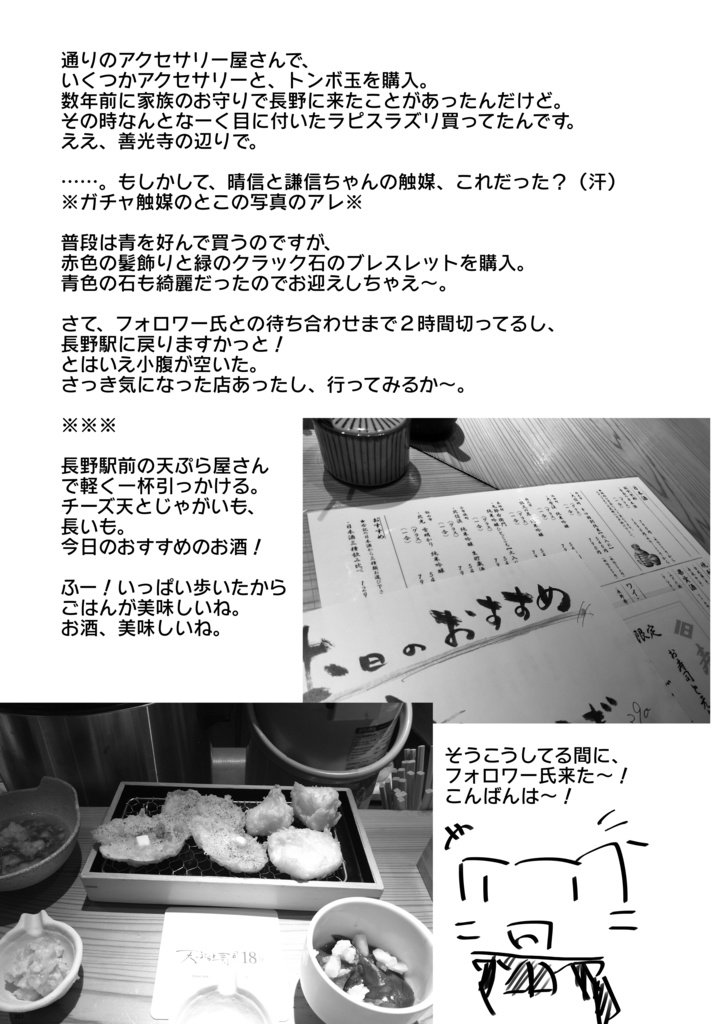 通りのアクセサリー屋さんで、
いくつかアクセサリーと、トンボ玉を購入。
数年前に家族のお守りで長野に来たことがあったんだけど。
その時なんとなーく目に付いたラピスラズリ買ってたんです。
ええ、善光寺の辺りで。
……。もしかして、晴信と謙信ちゃんの触媒、これだった？（汗）
※ガチャ触媒のとこの写真のアレ※
普段は青を好んで買うのですが、
赤色の髪飾りと緑のクラック石のブレスレットを購入。
青色の石も綺麗だったのでお迎えしちゃえ〜。
さて、フォロワー氏との待ち合わせまで２時間切ってるし、
長野駅に戻りますかっと！
とはいえ小腹が空いた。
さっき気になった店あったし、行ってみるか〜。
※※※
長野駅前の天ぷら屋さん
で軽く一杯引っかける。
チーズ天とじゃがいも、
長いも。
今日のおすすめのお酒！
ふー！いっぱい歩いたから
ごはんが美味しいね。
お酒、美味しいね。
日本酒
おすすめ
日のおすすめ
限定
そうこうしてる間に、
フォロワー氏来た〜！
こんばんは〜！
18